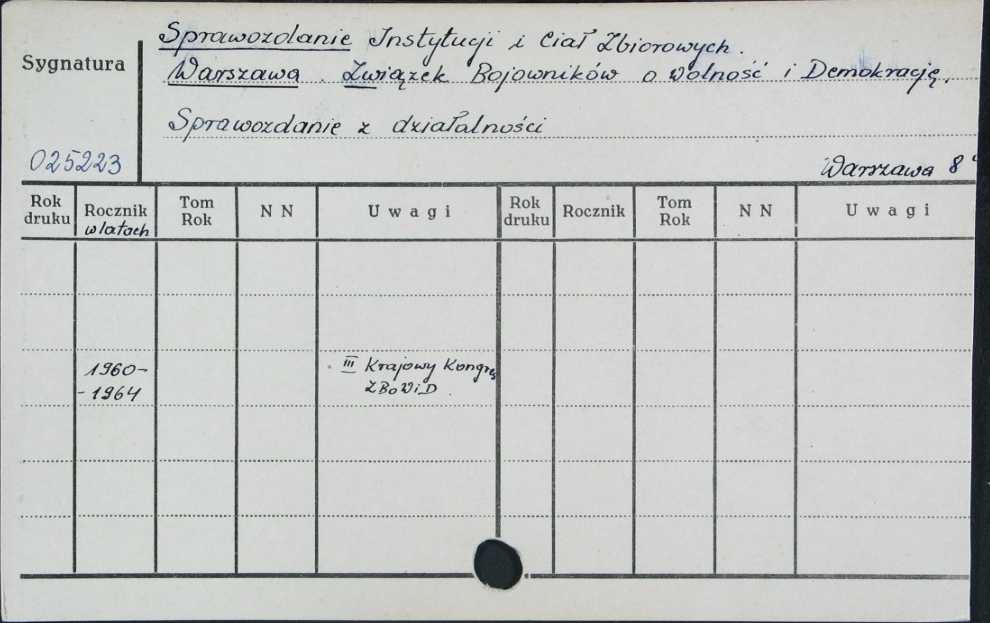 Sprawozdanie Instytucji i Ciał Zbiorowych.
Sygnatura
Warszawa. Związek Bojowników o Wolność i Demokrację.
Sprawozdanie z działalności
025223
Warszawa 8°
Rok druku Rocznik w latach Tom Rok N N Uwagi Rok druku Rocznik Tom Rok N N Uwagi
1960- III Krajowy Kongres
-1964 ZBoWiD